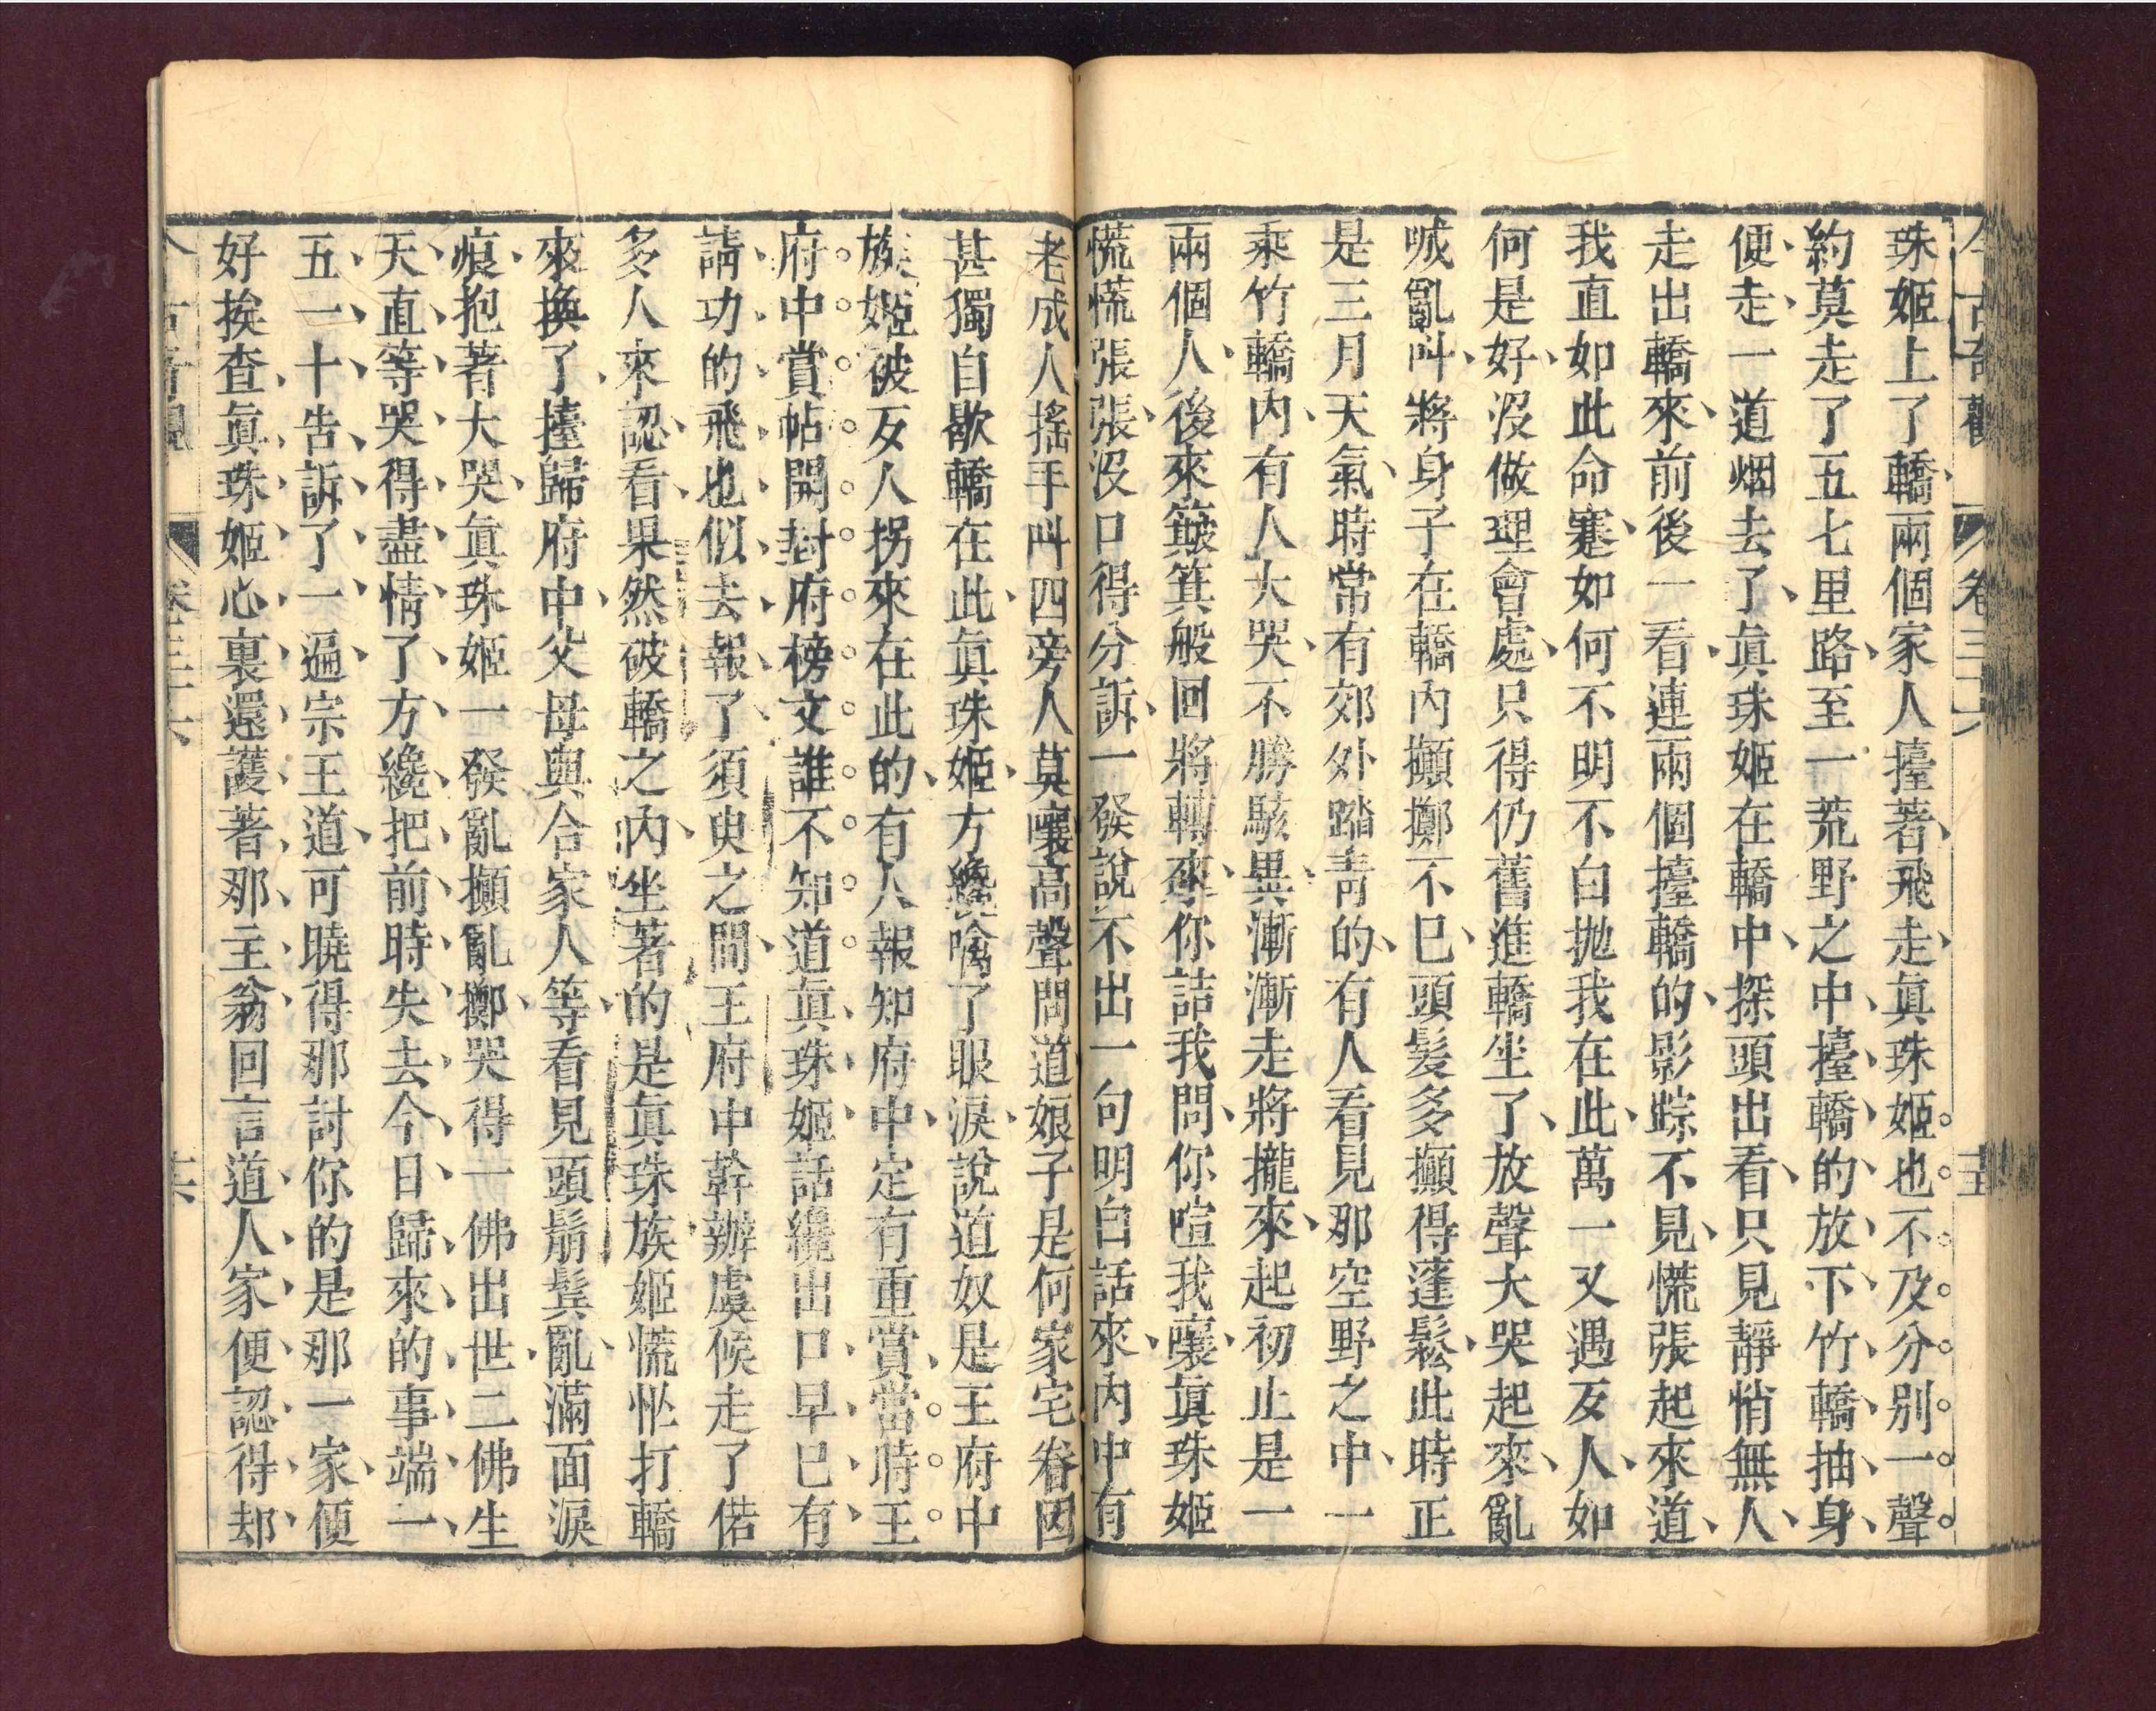 今古奇觀 卷三十六 十五
珠姬上了轎、兩個家人擡著、飛走、眞珠姬也不及分別一聲。
約莫走了五七里路、至一荒野之中、擡轎的放下竹轎、抽身
便走、一道烟去了、眞珠姬在轎中、探頭出看、只見靜悄無人、
走出轎來、前後一看、連兩個擡轎的、影踪不見、慌張起來道、
我直如此命蹇、如何不明不白抛我在此、萬一又遇歹人、如
何是好、沒做理會處、只得仍舊進轎坐了、放聲大哭起來、亂
喊亂叫、將身子在轎內攧擲不已、頭髮多攧得蓬鬆、此時正
是三月天氣、時常有郊外踏青的、有人看見那空野之中、一
乘竹轎內、有人大哭、不勝駭異、漸漸走將攏來、起初止是一
兩個人、後來簸箕般回將轉來、你詰我問、你喧我嚷、眞珠姬
慌慌張張、沒口得分訴、一發說不出一句明白話來、內中有
老成人搖手叫四旁人莫嚷、高聲問道娘子是何家宅眷因
甚獨自歇轎在此、眞珠姬方纔噙了眼淚、說道奴是王府中
族姬、被歹人拐來在此的、有人報知府中、定有重賞、當時王
府中賞帖、開封府榜文、誰不知道、眞珠姬話纔出口、早已有
請功的飛也似去報了、須臾之間、王府中幹辦虞候走了偌
多人來認看、果然破轎之內、坐著的是眞珠族姬、慌忙打轎
來換了、擡歸府中、父母與合家人等、看見頭鬅鬢亂、滿面淚
痕、抱著大哭、眞珠姬一發亂攧亂擲、哭得一佛出世、二佛生
天、直等哭得盡情了、方纔把前時失去今日歸來的事端、一
五一十、告訴了一遍、宗王道、可曉得那討你的是那一家、便
好挨查、眞珠姬心裏還護著那主翁、回言道、人家便認得、却
今古奇觀 卷三十六 十六